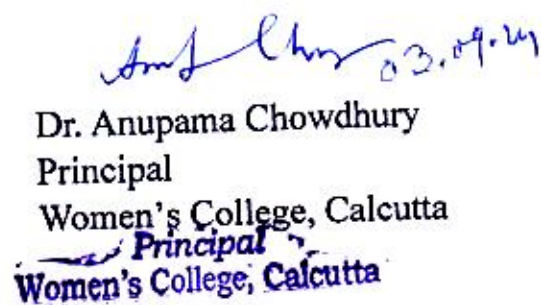 03.09.24
Dr. Anupama Chowdhury
Principal
Women's College, Calcutta
Principal
Women's College, Calcutta